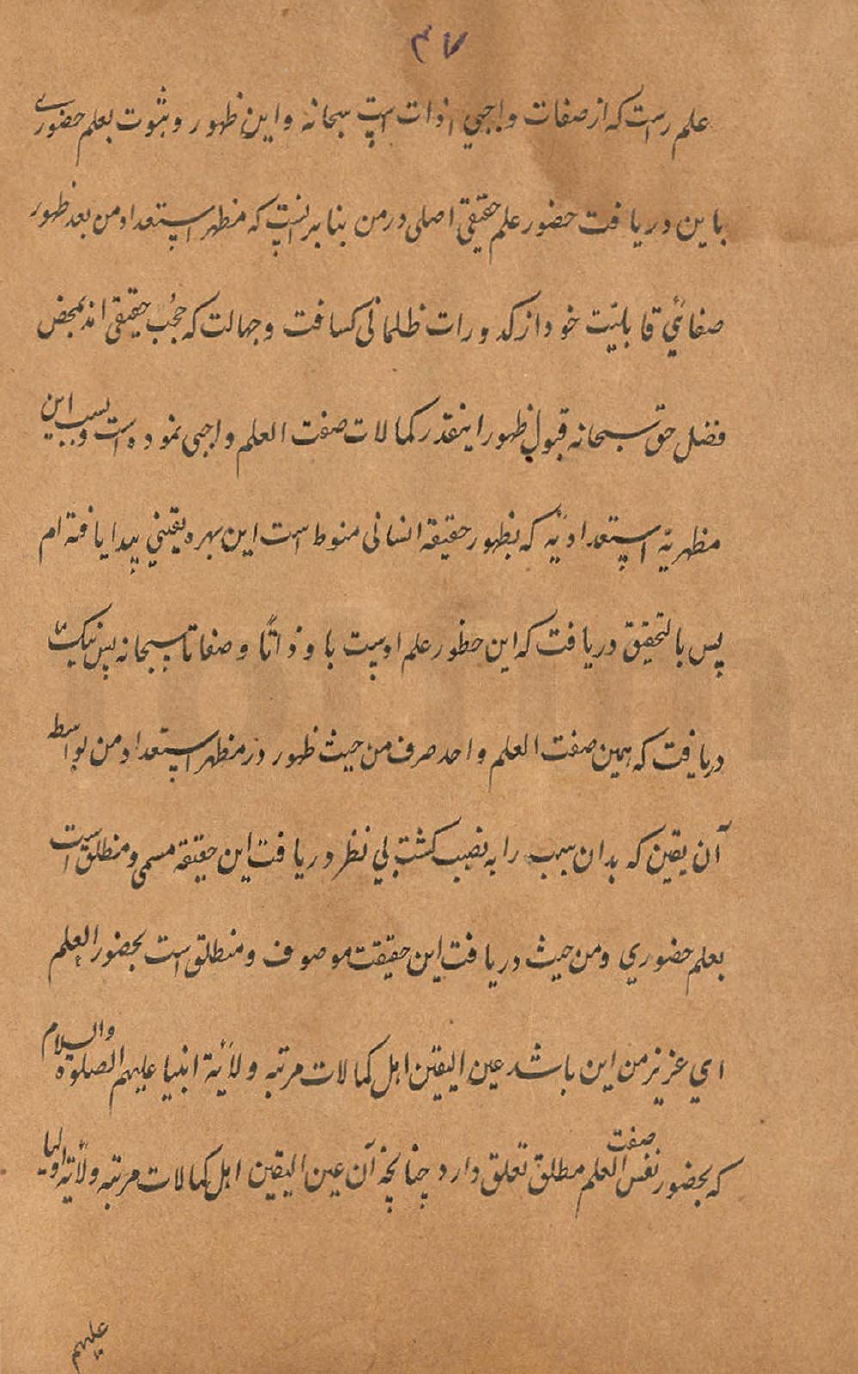 ۴۷
علم راست که از صفات واجبی ذات است سبحانه و این ظهور و ثبوت بعلم حضوری
باین دریافت حضور علم حقیقی اصلی در من بنا بر آنست که مظهر استعداد من بعد ظهور
صفائی قابلیّت خود از کدورات ظلمانی کسافت و جهالت که حجُب حقیقی اند بمحض
فضل حقّ سبحانه قبول ظهور اینقدر کمالات صفت العلم واجبی نموده است و بسبب این
مظهریّه استعدادیّه که بظهور حقیقة انسانی منوط است این بهره یقینی پیدا یافته ام
پس بالتحقیق دریافت که این حظور علم اوست باو ذاتًا و صفاتا سبحانه پس نیک
دریافت که همین صفت العلم واحد صرف من حیث ظهور در مظهر استعداد من بواسطه
آن یقین که بدان سبب را به نصیب کشت بی نظر دریافت این حقیقة مسمی و منطلق است
بعلم حضوری و من حیث دریافت این حقیقت موصوف و منطلق است بحضور العلم
ای عزیز من این باشد عین الیقین اهل کمالات مرتبه ولایة انبیا علیهم الصلوة والسلام
که بحضور نفس صفت العلم مطلق تعلق دارد چنانچه آن عین الیقین اهل کمالات مرتبه ولایة اولیا
علیهم